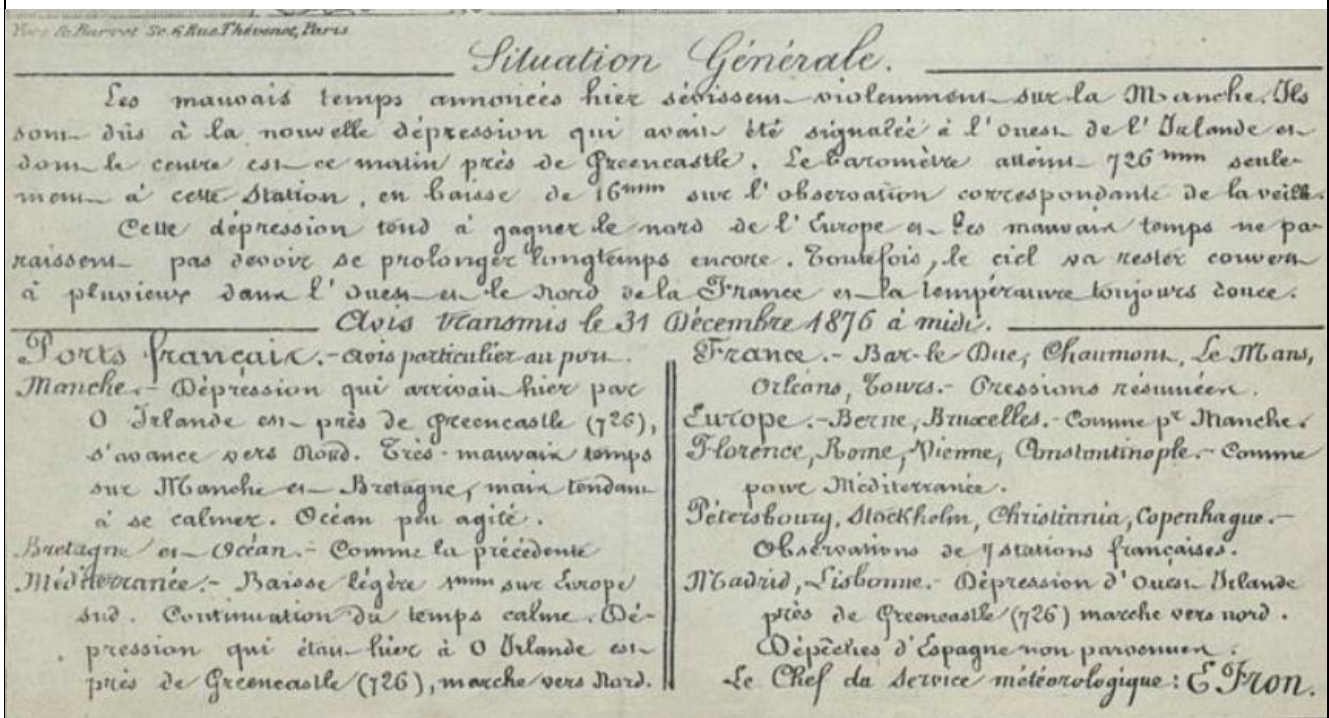 Yves & Barret Sc. 6 Rue Thévenot, Paris
Situation Générale.
Les mauvais temps annoncés hier sévissent violemment sur la Manche. Ils
sont dûs à la nouvelle dépression qui avait été signalée à l'ouest de l'Irlande et
dont le centre est ce matin près de Greencastle. Le baromètre atteint 726 mm seule-
ment à cette station, en baisse de 16mm sur l'observation correspondante de la veille.
Cette dépression tend à gagner le nord de l'Europe et les mauvais temps ne pa-
raissent pas devoir se prolonger longtemps encore. Toutefois, le ciel va rester couvert
à pluvieux dans l'ouest et le nord de la France et la température toujours douce.
Avis transmis le 31 Décembre 1876 à midi.
Ports français.- avis particulier au port.
Manche.- Dépression qui arrivait hier par
O Irlande est près de Greencastle (726),
s'avance vers Nord. Très-mauvais temps
sur Manche et Bretagne, mais tendant
à se calmer. Océan peu agité.
Bretagne et Océan.- Comme la précédente
Méditerranée.- Baisse légère 1mm sur Europe
sud. Continuation du temps calme. Dé-
pression qui était hier à O Irlande est
près de Greencastle (726), marche vers Nord.
France.- Bar-le-Duc, Chaumont, Le Mans,
Orléans, Tours.- Pressions résumées.
Europe.- Berne, Bruxelles.- Comme pr Manche.
Florence, Rome, Vienne, Constantinople.- Comme
pour Méditerranée.
Pétersbourg, Stockholm, Christiania, Copenhague.-
Observations de 7 stations françaises.
Madrid, Lisbonne.- Dépression d'Ouest Irlande
près de Greencastle (726) marche vers nord.
Dépêches d'Espagne non parvenues.
Le Chef du Service météorologique: E Fron.